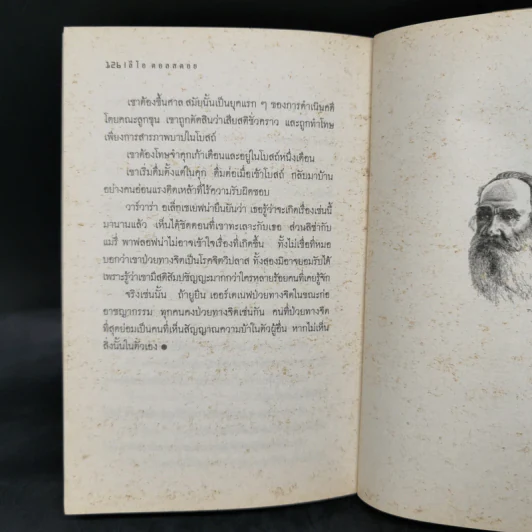 ๑๕๒ เลโอ ตอลสตอย
เขาต้องขึ้นศาล สมัยนั้นเป็นยุคแรก ๆ ของการดำเนินคดี
โดยคณะลูกขุน เขาถูกตัดสินว่าเสียสติชั่วคราว และถูกทำโทษ
เพียงการสารภาพบาปในโบสถ์
เขาต้องโทษจำคุกเก้าเดือนและอยู่ในโบสถ์หนึ่งเดือน
เขาเริ่มดื่มตั้งแต่ในคุก ดื่มต่อเมื่อเข้าโบสถ์ กลับมาบ้าน
อย่างคนอ่อนแรงติดเหล้าที่ไร้ความรับผิดชอบ
วาร์วาร่า อเล็อเซเยฟน่ายืนยันว่า เธอรู้ว่าจะเกิดเรื่องเช่นนี้
มานานแล้ว เห็นได้ชัดตอนที่เขาทะเลาะกับเธอ ส่วนลิซ่ากับ
แมรี่ พาฟลอฟน่าไม่อาจเข้าใจเรื่องที่เกิดขึ้น ทั้งไม่เชื่อที่หมอ
บอกว่าเขาป่วยทางจิตเป็นโรคจิตวิปลาส ทั้งสองมิอาจยอมรับได้
เพราะรู้ว่าเขามีสติสัมปชัญญะมากกว่าใครหลายร้อยคนที่เคยรู้จัก
จริงเช่นนั้น ถ้ายูยีน เออร์เตเนฟป่วยทางจิตในขณะก่อ
อาชญากรรม ทุกคนคงป่วยทางจิตเช่นกัน คนที่ป่วยทางจิต
ที่สุดย่อมเป็นคนที่เห็นสัญญาณความบ้าในตัวผู้อื่น หากไม่เห็น
สิ่งนั้นในตัวเอง ●